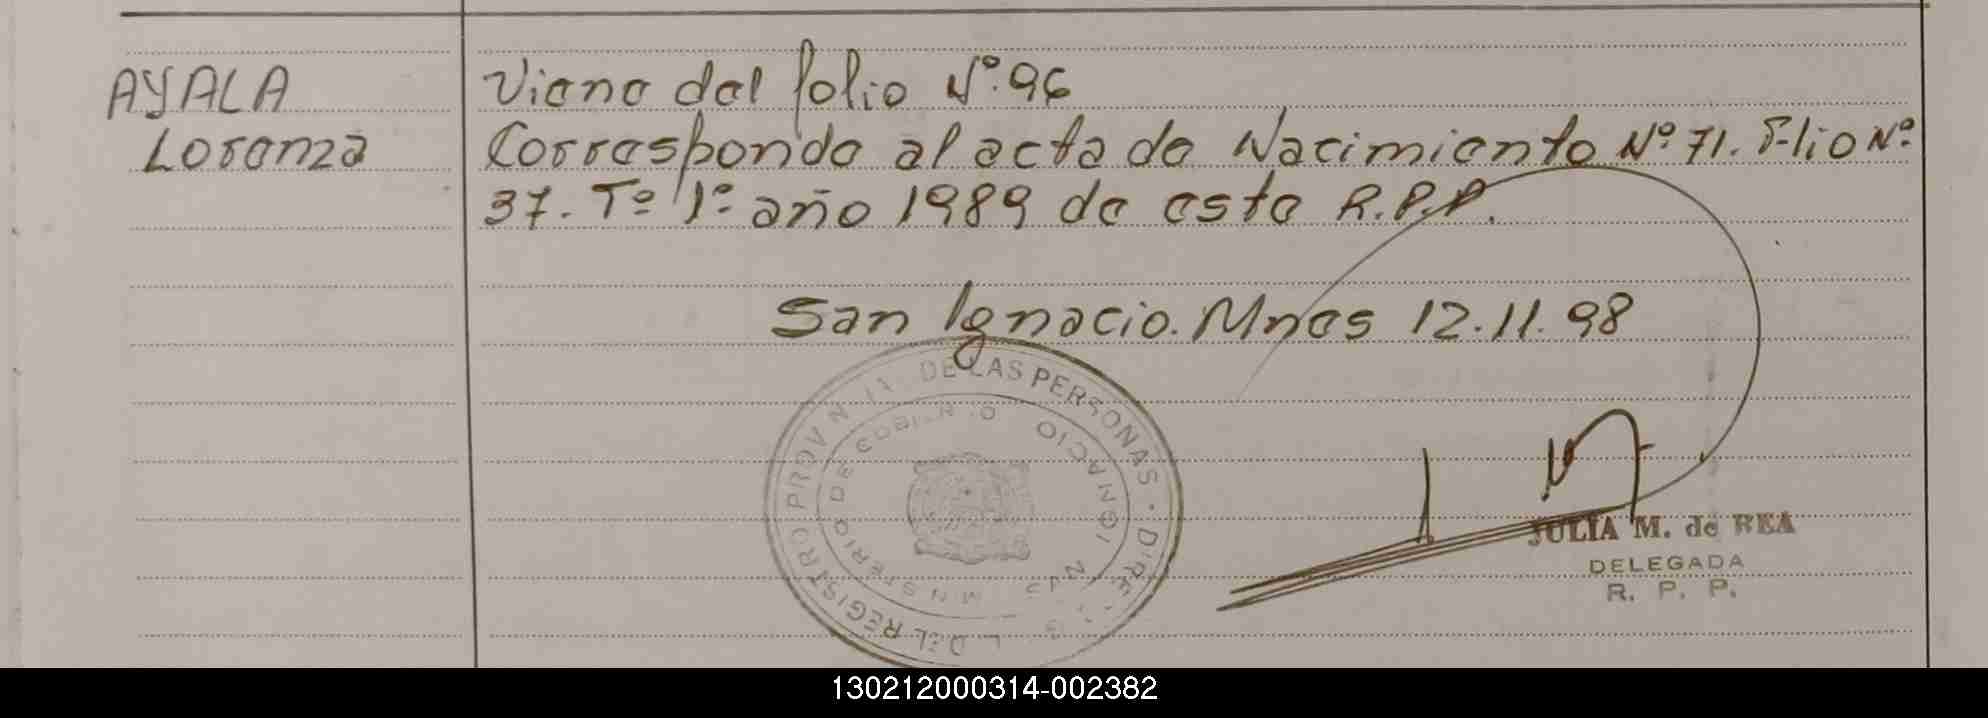 AYALA
Lorenza
Viene del folio Nº.96
Corresponde al acta de Nacimiento Nº 71. Flio Nº.
37. Tº 1º año 1989 de este R.P.P.
San Ignacio. Mnes 12.11.98
DEL REGISTRO PROV DE LAS PERSONAS
MINISTERIO DE GOBIERNO
SAN IGNACIO
JULIA M. de REA
DELEGADA
R. P. P.
130212000314-002382